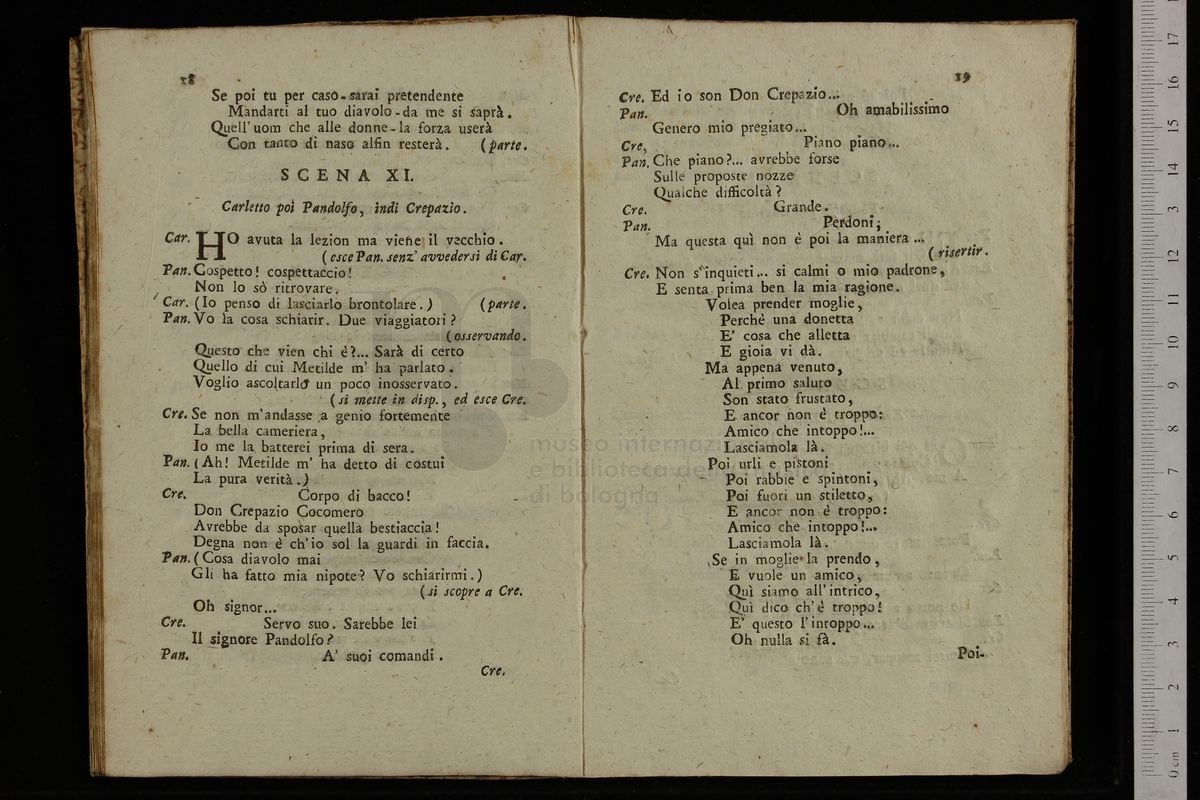 18
Se poi tu per caso-sarai pretendente
Mandarti al tuo diavolo-da me si saprà.
Quell'uom che alle donne-la forza userà
Con tanto di naso alfin resterà. (parte.
SCENA XI.
Carletto poi Pandolfo, indi Crepazio.
Car. HO avuta la lezion ma viene il vecchio.
(esce Pan. senz' avvedersi di Car.
Pan. Cospetto! cospettaccio!
Non lo sò ritrovare.
Car. (Io penso di lasciarlo brontolare.) (parte.
Pan. Vo la cosa schiarir. Due viaggiatori?
(osservando.
Questo che vien chi è?... Sarà di certo
Quello di cui Metilde m' ha parlato.
Voglio ascoltarlo un poco inosservato.
(si mette in disp., ed esce Cre.
Cre. Se non m'andasse a genio fortemente
La bella cameriera,
Io me la batterei prima di sera.
Pan. (Ah! Metilde m' ha detto di costui
La pura verità.)
Cre. Corpo di bacco!
Don Crepazio Cocomero
Avrebbe da sposar quella bestiaccia!
Degna non è ch'io sol la guardi in faccia.
Pan. (Cosa diavolo mai
Gli ha fatto mia nipote? Vo schiarirmi.)
(si scopre a Cre.
Oh signor...
Cre. Servo suo. Sarebbe lei
Il signore Pandolfo?
Pan. A' suoi comandi.
Cre.
19
Cre. Ed io son Don Crepazio...
Pan. Oh amabilissimo
Genero mio pregiato...
Cre, Piano piano...
Pan. Che piano?... avrebbe forse
Sulle proposte nozze
Qualche difficoltà?
Cre. Grande.
Pan. Perdoni;
Ma questa quì non è poi la maniera ...
(risertir.
Cre. Non s'inquieti... si calmi o mio padrone,
E senta prima ben la mia ragione.
Volea prender moglie,
Perchè una donetta
E' cosa che alletta
E gioia vi dà.
Ma appena venuto,
Al primo saluto
Son stato frustato,
E ancor non è troppo:
Amico che intoppo!...
Lasciamola là.
Poi urli e pistoni
Poi rabbie e spintoni,
Poi fuori un stiletto,
E ancor non è troppo:
Amico che intoppo!...
Lasciamola là.
Se in moglie la prendo,
E vuole un amico,
Quì siamo all'intrico,
Quì dico ch'è troppo!
E' questo l'intoppo...
Oh nulla si fà.
Poi-
museo internazi
e biblioteca de
di bologna